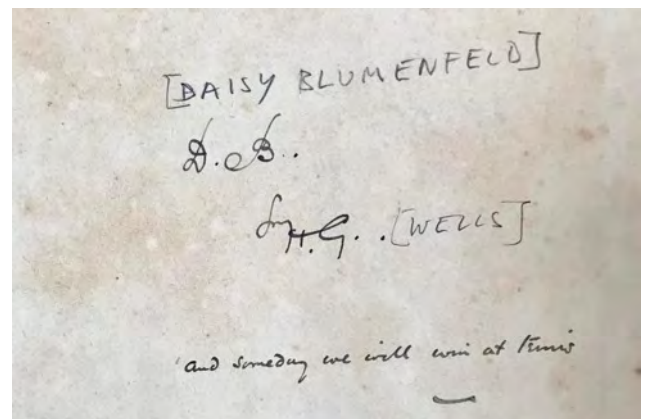 [DAISY BLUMENFELD]
D. B.
from H. G. [WELLS]
and someday we will win at tennis